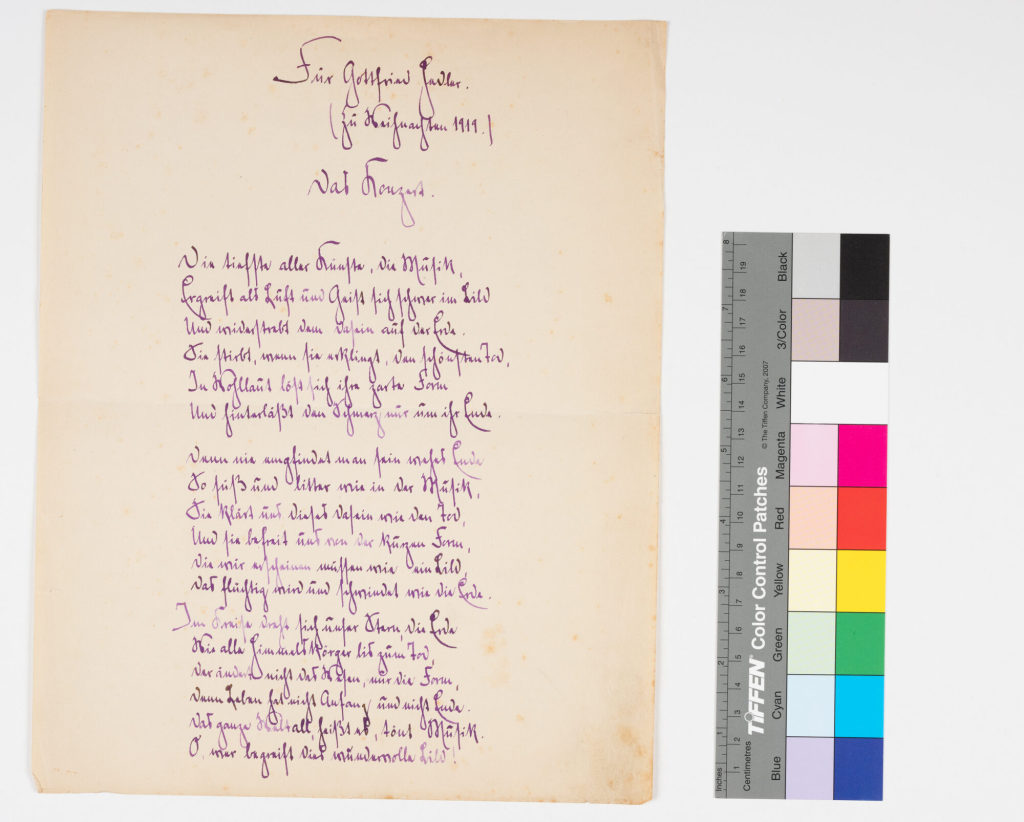 Für Gottfried Hedler.
(Zu Weihnachten 1919.)
Das Konzert.
Die tiefste aller Künste, die Musik,
Ergreift als Luft und Geist sich schwer im Bild
Und widerstrebt dem Dasein auf der Erde.
Sie stirbt, wenn sie erklingt, den schönsten Tod,
In Wohllaut löst sich ihre zarte Form
Und hinterläßt den Schmerz nur um ihr Ende.
Denn nie empfindet man sein nahes Ende
So süß und bitter wie in der Musik,
Sie klärt uns dieses Dasein wie den Tod,
Und sie befreit uns von der kurzen Form,
Die wir erscheinen müssen wie ein Bild,
Das flüchtig wird und schwindet wie die Erde.
Im Kreise dreht sich unser Stern, die Erde
Wie alle Himmelskörper bis zum Tod,
Der ändert nicht das Wesen, nur die Form,
Denn Leben hat nicht Anfang und nicht Ende.
Das ganze Weltall, heißt es, tönt Musik.
O, wer begreift dies wundervolle Bild!
Inches
1 2 3 4 5 6 7 8
Centimetres
1 2 3 4 5 6 7 8 9 10 11 12 13 14 15 16 17 18 19
TIFFEN® Color Control Patches
© The Tiffen Company, 2007
Blue
Cyan
Green
Yellow
Red
Magenta
White
3/Color
Black